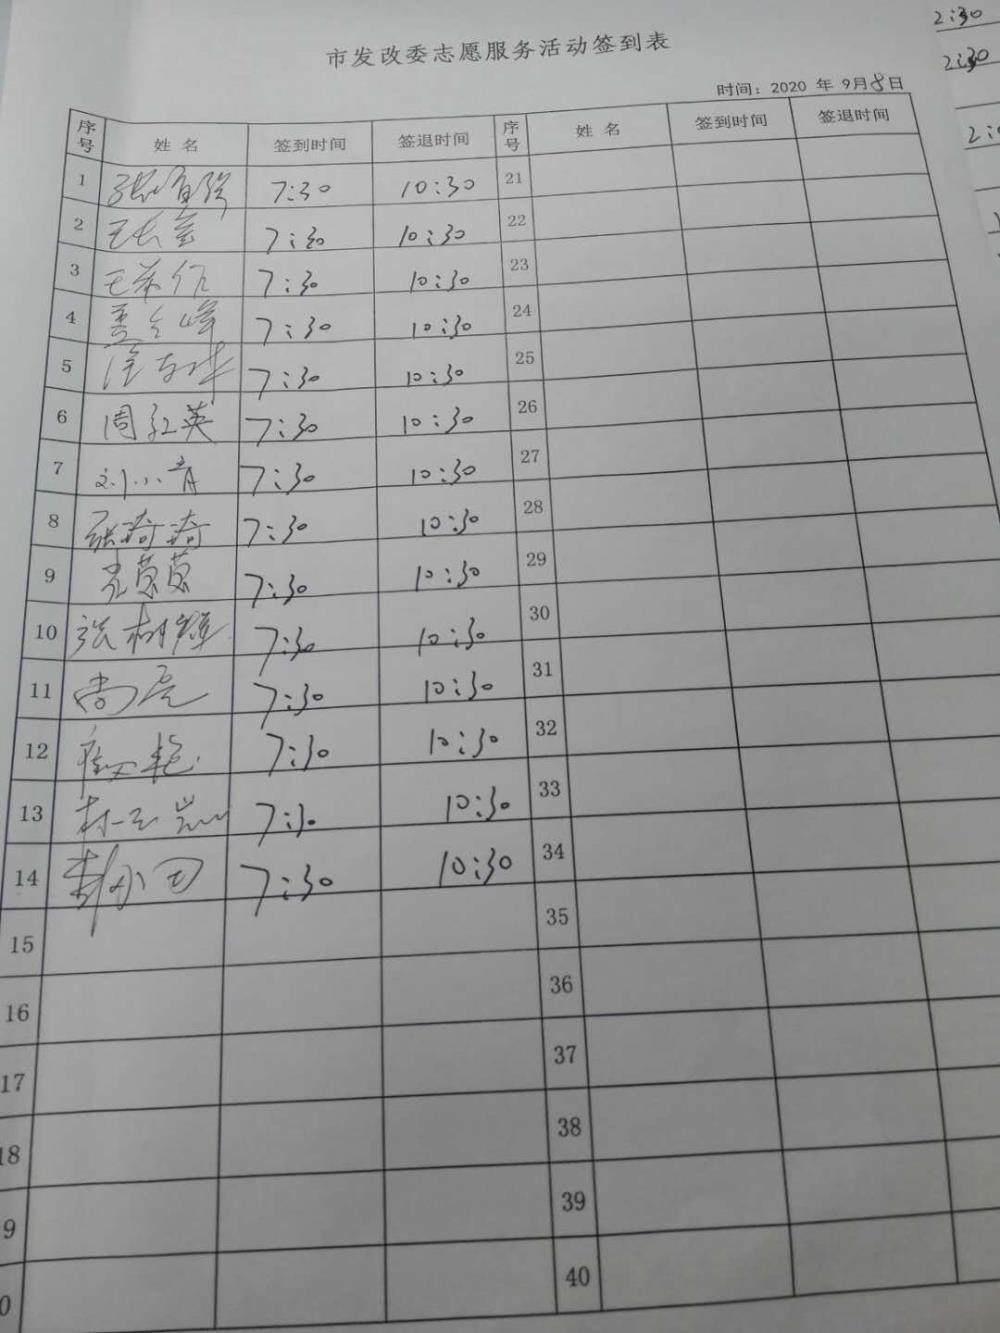 市发改委志愿服务活动签到表
时间：2020 年 9月8日
序号 姓 名 签到时间 签退时间 序号 姓 名 签到时间 签退时间
1 7:30 10:30 21
2 7:30 10:30 22
3 7:30 10:30 23
4 7:30 10:30 24
5 7:30 10:30 25
6 周红英 7:30 10:30 26
7 刘小青 7:30 10:30 27
8 张琦琦 7:30 10:30 28
9 7:30 10:30 29
10 张树辉 7:30 10:30 30
11 尚亮 7:30 10:30 31
12 7:30 10:30 32
13 7:30 10:30 33
14 7:30 10:30 34
15 35
16 36
17 37
18 38
9 39
0 40
2:30
2:30